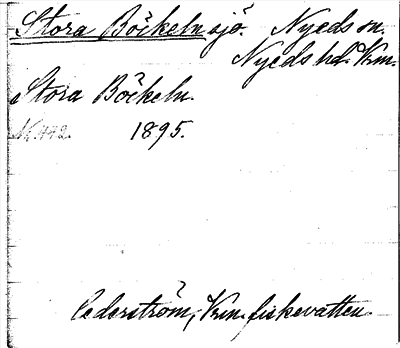 Stora Böckeln sjö. Nyeds sn.
Nyeds hd. Vrm.
Stora Böckeln.
1895.
Cederström, Vrm. fiskevatten.